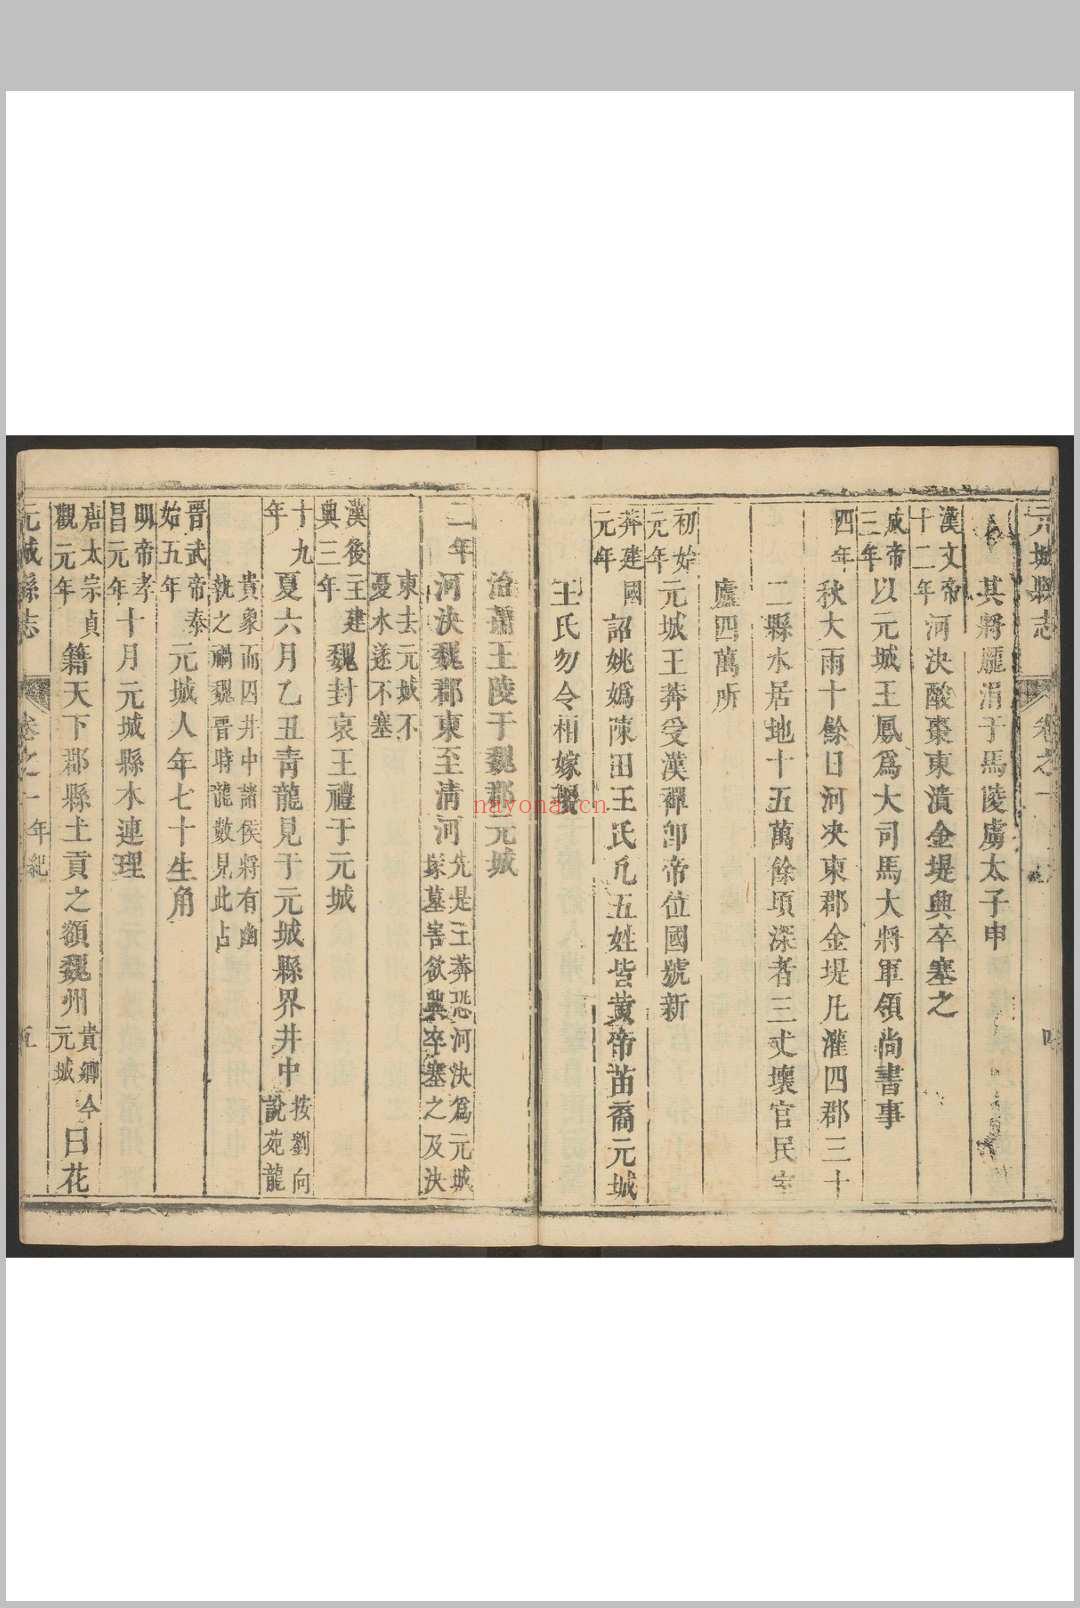 元城縣志 卷之一
其將龐涓于馬陵虜太子申
漢文帝十二年 河決酸棗東潰金堤興卒塞之
成帝三年 以元城王鳳爲大司馬大將軍領尚書事
四年 秋大雨十餘日河決東郡金堤凡灌四郡三十
二縣水居地十五萬餘頃深者三丈壞官民室
廬四萬所
初始元年 元城王莽受漢禪卽帝位國號新
莽建國元年 詔姚嬀陳田王氏凡五姓皆黃帝苗裔元城
王氏勿令相嫁娶
治 王陵于魏郡元城
二年 河決魏郡東至淸河 先是王莽恐河決爲元城冢墓害欲興卒塞之及決
東去元城不憂水遂不塞
漢後主建興三年 魏封哀王禮于元城
十九年 夏六月乙丑靑龍見于元城縣界井中 按劉向說苑龍
貴象而囚井中諸侯將有幽執之禍魏晋時龍數見此占
晋武帝泰始五年 元城人年七十生角
明帝孝昌元年 十月元城縣木連理
唐太宗貞觀元年 籍天下郡縣土貢之額魏州 貴鄉今元城 曰花
元城縣志 卷之一 年紀 五
nayona.cn